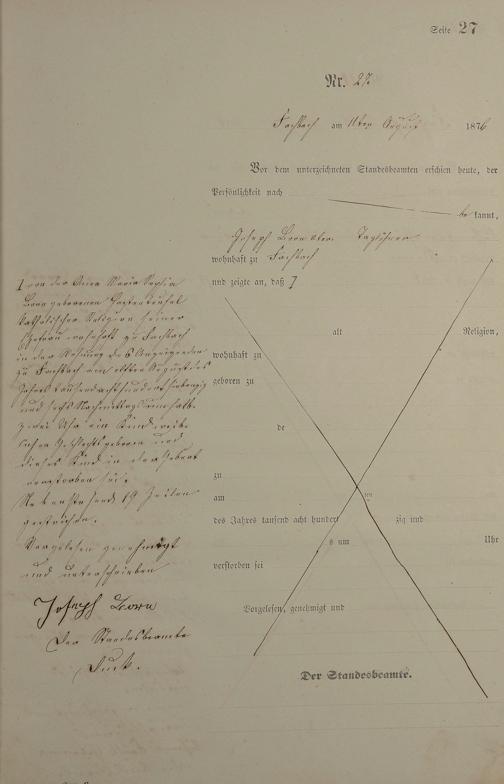 Seite 27
Nr. 27.
Fachbach am 11ten August 1876
Vor dem unterzeichneten Standesbeamten erschien heute, der
Persönlichkeit nach
be kannt,
Joseph Born Taglöhner
wohnhaft zu Fachbach
und zeigte an, daß
von der Anna Maria Sophia
Born geborenen
katholischer Religion seiner
Ehefrau wohnhaft zu Fachbach
in der Wohnung des
zu Fachbach am elften August des
Jahres tausend acht hundert siebenzig
und sechs Nachmittags um halb
zwei Uhr ein Kind weib-
lichen Geschlechts geboren und
dieses Kind in der Geburt
verstorben sei.
Nebenstehend 19 Zeilen
gestrichen.
Vorgelesen genehmigt
und unterschrieben
Joseph Born
Der Standesbeamte
alt Religion,
wohnhaft zu
geboren zu
de
zu
am ten
des Jahres tausend acht hundert zig und
s um Uhr
verstorben sei
Vorgelesen, genehmigt und
Der Standesbeamte.